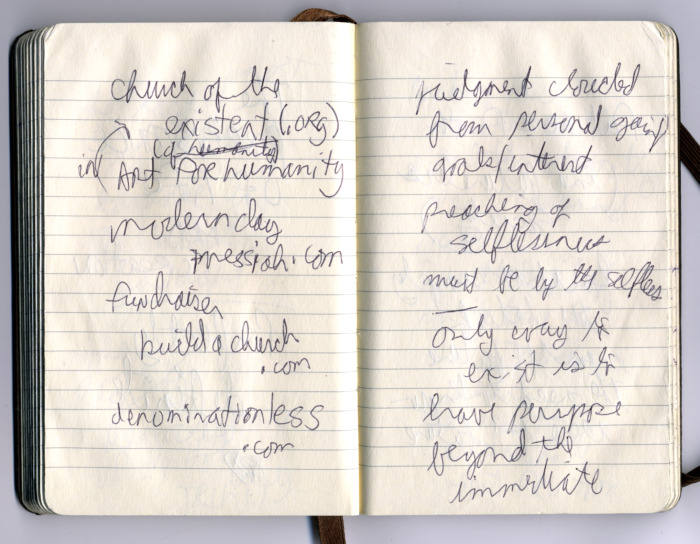 church of the
existent (.org)
(of humanity)
in Art for humanity
modern day
messiah.com
fundraiser
build a church
.com
denominationless
.com
judgment clouded
from personal gain
goals/interest
preaching of
selflessness
must be by the selfless
only way to
exist is to
have purpose
beyond the
immediate